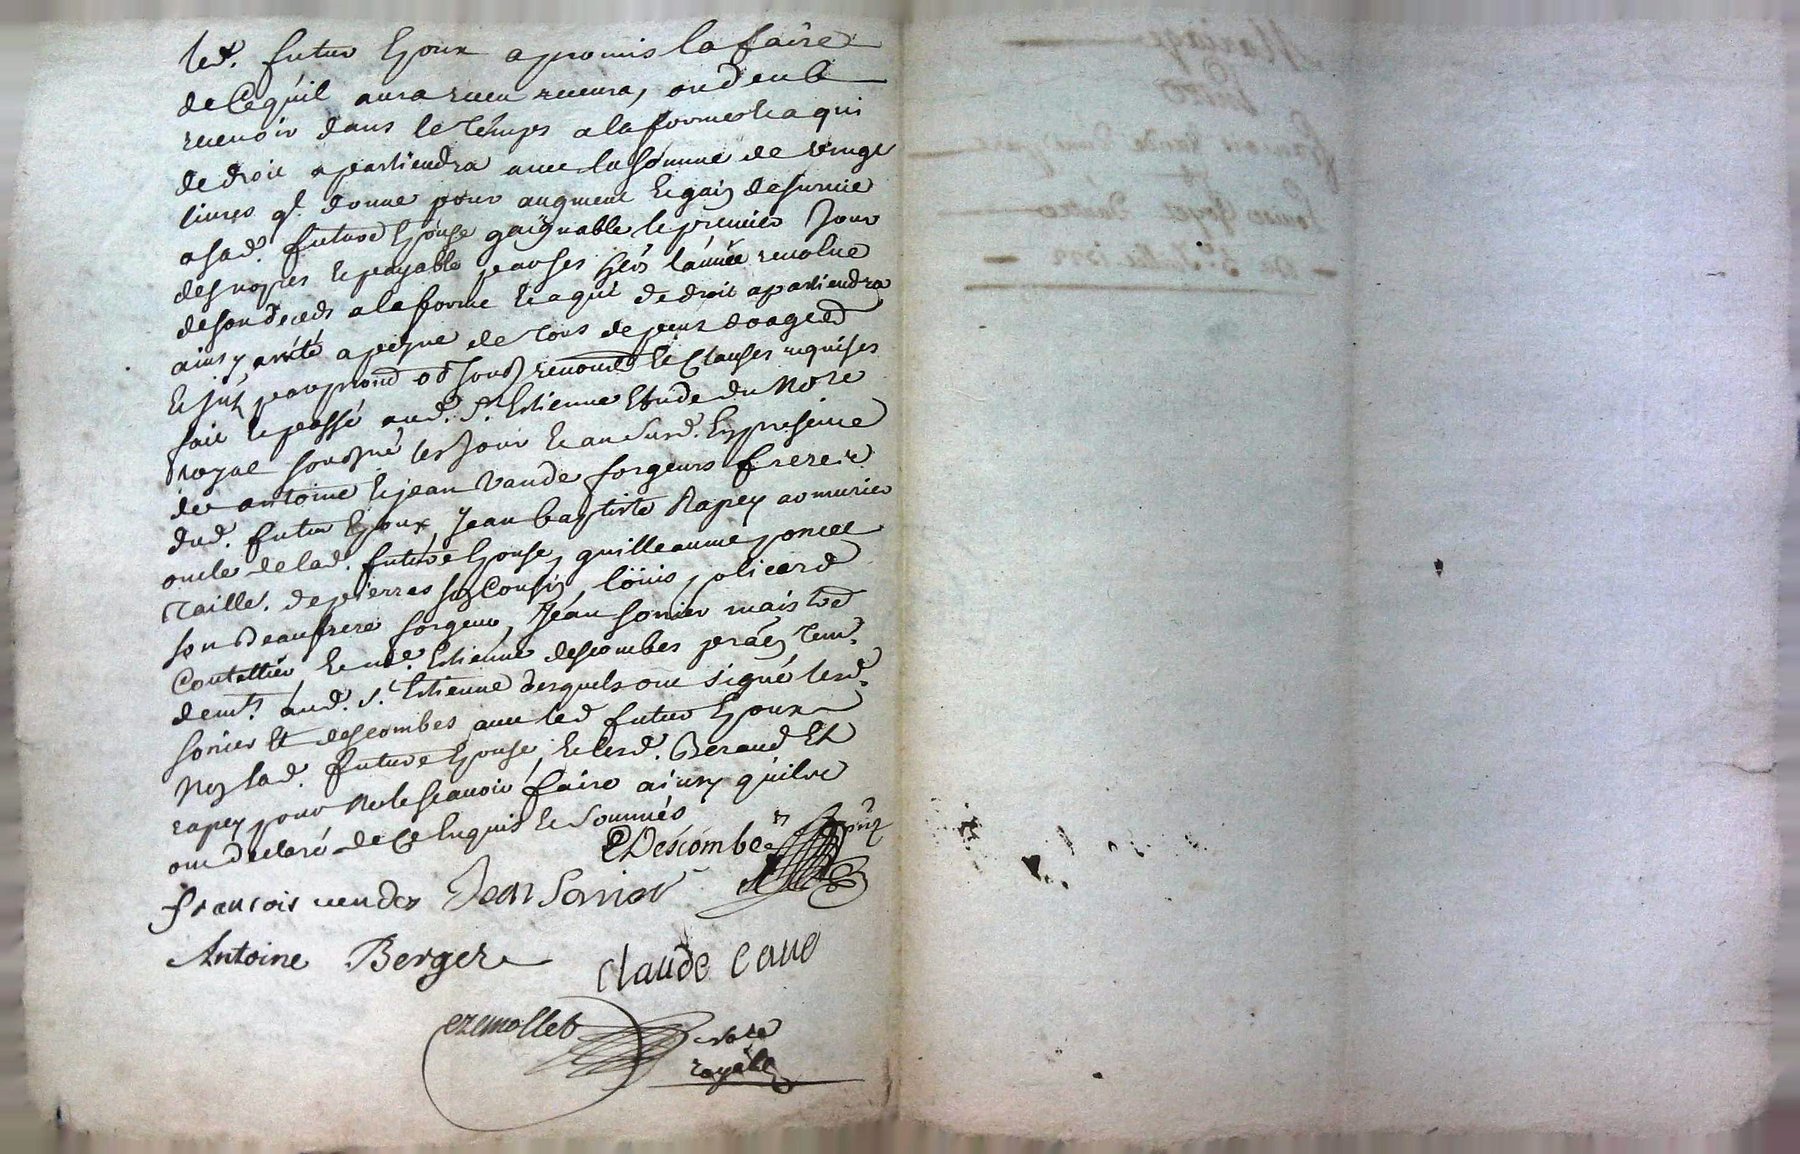 led. futur Epoux a promis la faire
de Ce quil aura receu recevra, ou deub
recevoir dans le temps a la forme Et a qui
de droit apartiendra avec la somme de vingt
livres ql. donne pour augment Et gain de survie
a sad. future Epouse gaignable le premier Jour
des nopces Et payable par ses h̃ers l'année revolue
de son deceds a la forme Et a qui de droit apartiendra
ainsy arrêté a peyne de tous depens domaged
Et jnt̃ par prom̃ obd soub̃ renond Et Clauses requises
fait Et passé aud. St. Estienne Etude du Nore
royal sousigné les Jour Et an susd. En presence
de antoine Et jean Vande forgeurs freres
dud. futur Epoux, Jean baptiste Rapey armurier
oncle de lad. future Epouse, guilleaume poncet
taille. de pierres son Cousin, loüis policard
son beaufrere forgeur, Jean sonier maistre
Contellier, Et me. Estienne descombes praen tem̃.
demt. aud. St. Estienne desquels ont signé lesd.
sonier Et descombes avec led futur Epoux
Non lad. future Epouse, Et lesd. Beraud Et
rapey pour Ne le scavoir faire ainsy quils
ont declaré de Ce Enquis Et sommés
EDescombes
francois vendes Jean Sonier
Antoine Berger
claude Cave
ezemollet nore
royal
Mariage
Entre
francois Vande
&
Louise